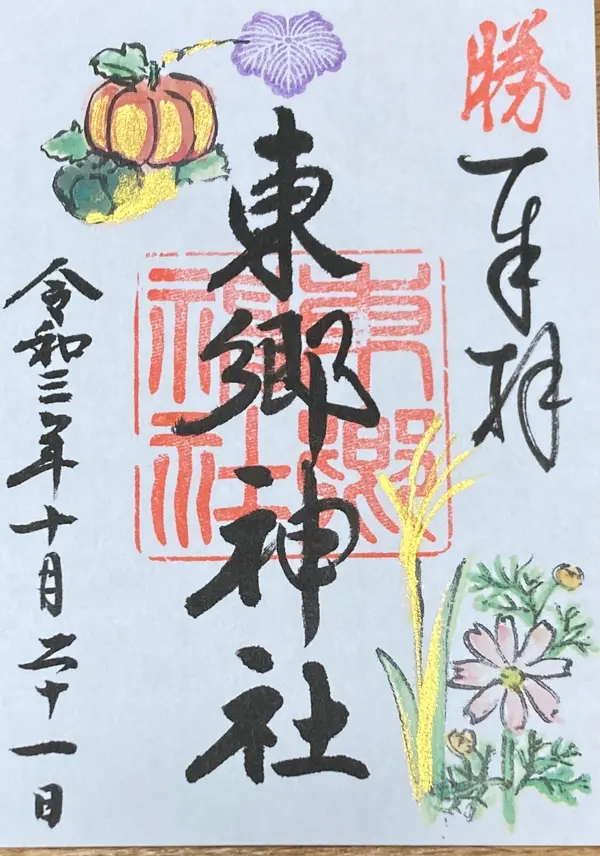 勝
奉拝
東郷神社
東郷神社
令和三年十月二十一日